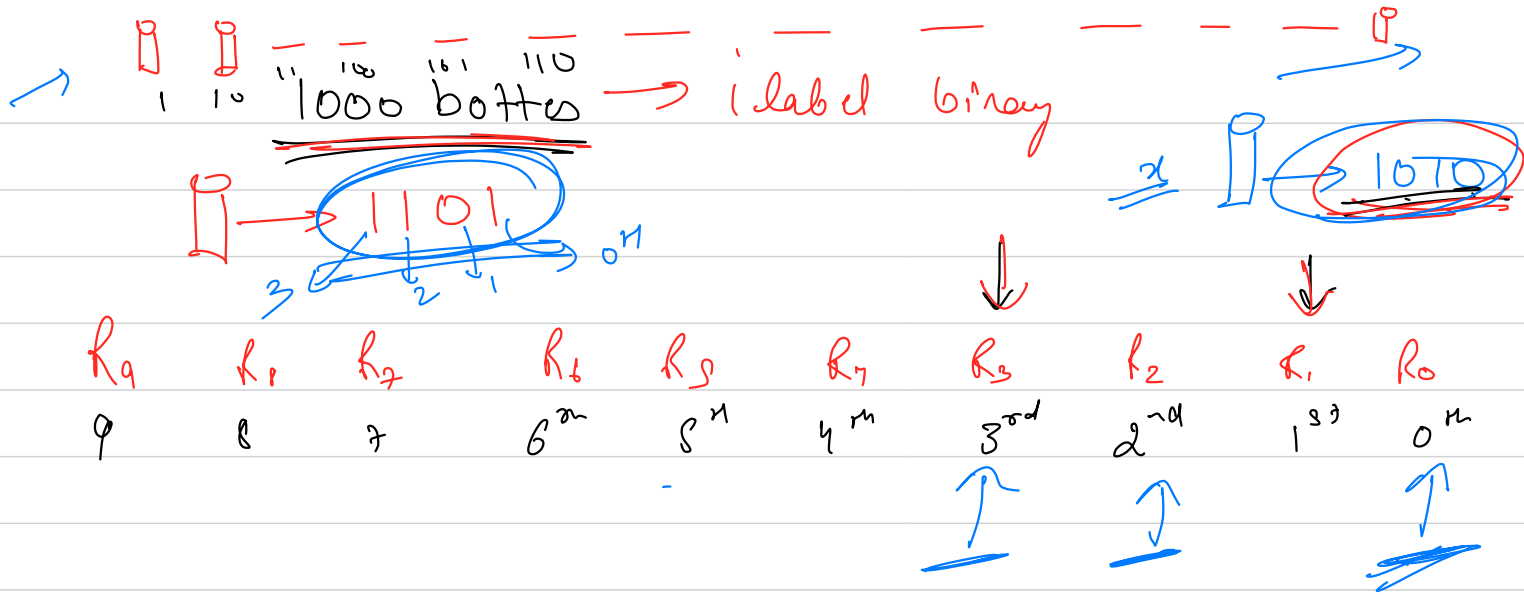 1 10 11 100 101 110
1000 bottes → i label binary
x
1101 → 1010
3 2 1 0th
R9 R8 R7 R6 R5 R4 R3 R2 R1 R0
9 8 7 6th 5th 4th 3rd 2nd 1st 0th